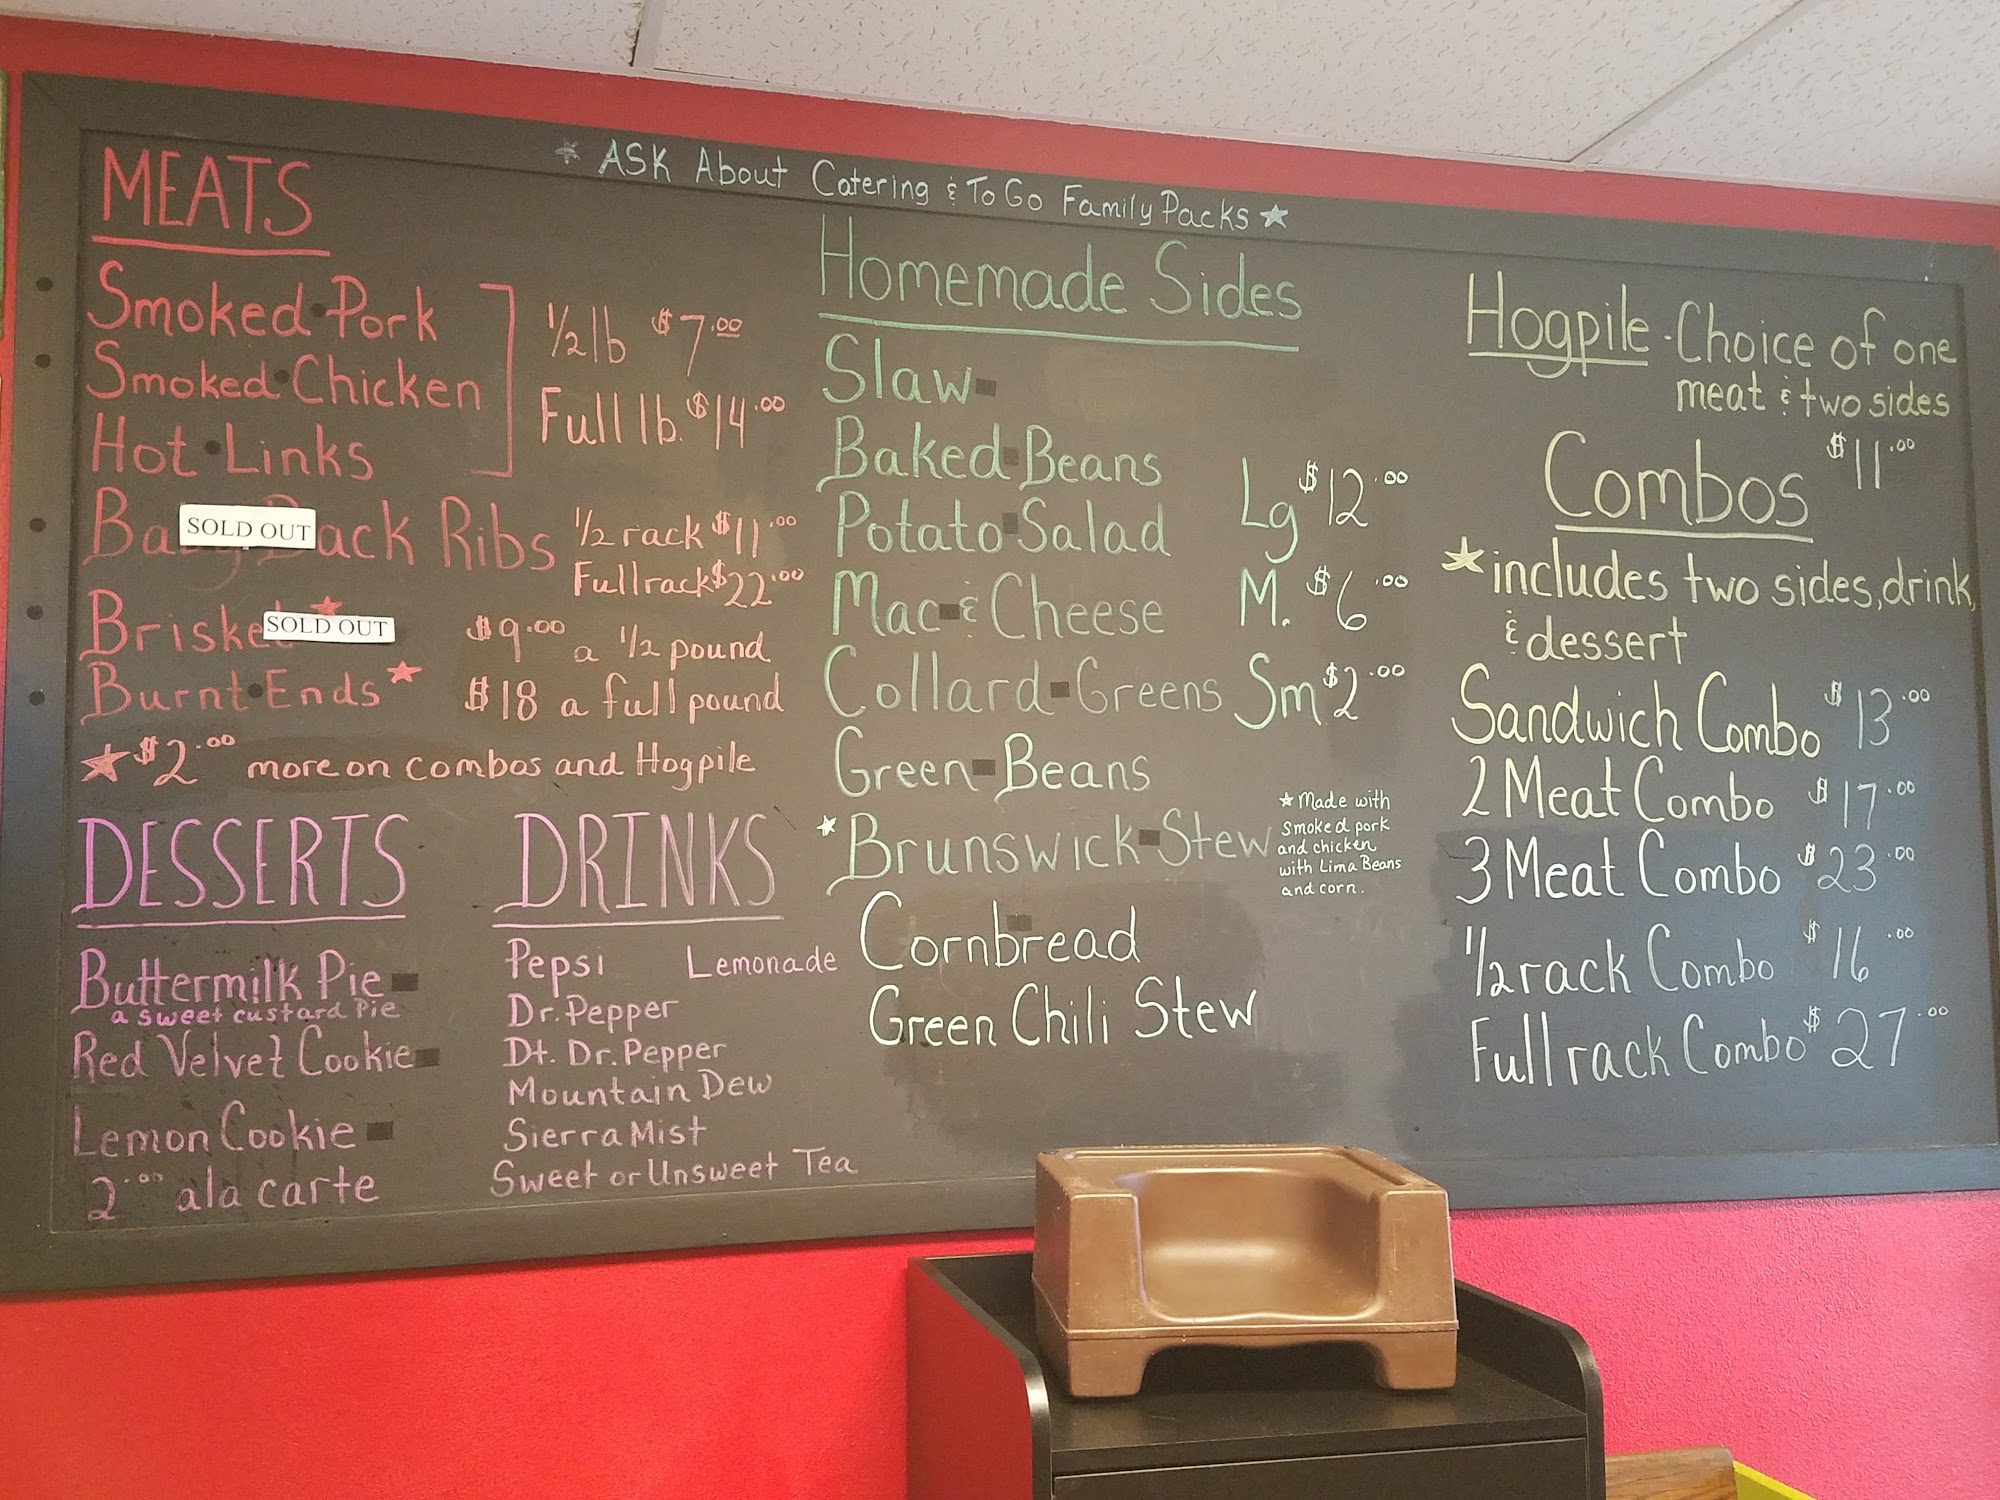 * ASK About Catering & To Go Family Packs ★
MEATS
Smoked Pork
Smoked Chicken
Hot Links
1/2 lb $7.00
Full lb. $14.00
Baby Back Ribs
SOLD OUT
1/2 rack $11.00
Full rack $22.00
Brisket ★
SOLD OUT
Burnt Ends ★
$9.00 a 1/2 pound
$18 a full pound
★ $2.00 more on combos and Hogpile
DESSERTS
Buttermilk Pie
a sweet custard Pie
Red Velvet Cookie
Lemon Cookie
2.00 ala carte
DRINKS
Pepsi Lemonade
Dr. Pepper
Dt. Dr. Pepper
Mountain Dew
Sierra Mist
Sweet or Unsweet Tea
Homemade Sides
Slaw
Baked Beans
Potato Salad
Mac & Cheese
Collard Greens
Green Beans
★ Brunswick Stew
Cornbread
Green Chili Stew
Lg $12.00
M. $6.00
Sm $2.00
★ Made with
smoked pork
and chicken
with Lima Beans
and corn.
Hogpile - Choice of one
meat & two sides
$11.00
Combos
★ includes two sides, drink,
& dessert
Sandwich Combo $13.00
2 Meat Combo $17.00
3 Meat Combo $23.00
1/2 rack Combo $16.00
Full rack Combo $27.00